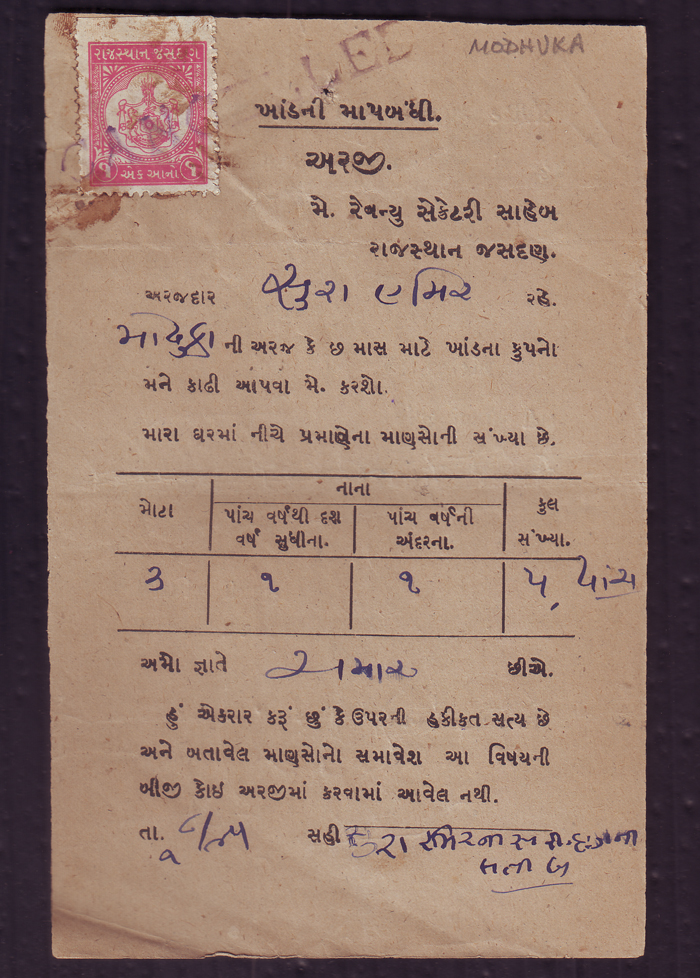 MODHUKA
રાજસ્થાન જસદણ
૧ એક આનો ૧
ખાંડની માપબંધી.
અરજી.
મે. રેવન્યુ સેક્રેટરી સાહેબ
રાજસ્થાન જસદણ.
અરજદાર સુરા રહે.
ની અરજ કે છ માસ માટે ખાંડના કુપનો
મને કાઢી આપવા મે. કરશો.
મારા ઘરમાં નીચે પ્રમાણેના માણસોની સંખ્યા છે.
નાના
મોટા
પાંચ વર્ષથી દશ વર્ષ સુધીના.
પાંચ વર્ષની અંદરના.
કુલ સંખ્યા.
૩ ૧ ૧ ૫, પાંચ
અમો જ્ઞાતે ચમાર છીએ.
હું એકરાર કરૂં છું કે ઉપરની હકીકત સત્ય છે
અને બતાવેલ માણસોનો સમાવેશ આ વિષયની
બીજી કોઇ અરજીમાં કરવામાં આવેલ નથી.
તા. સહી